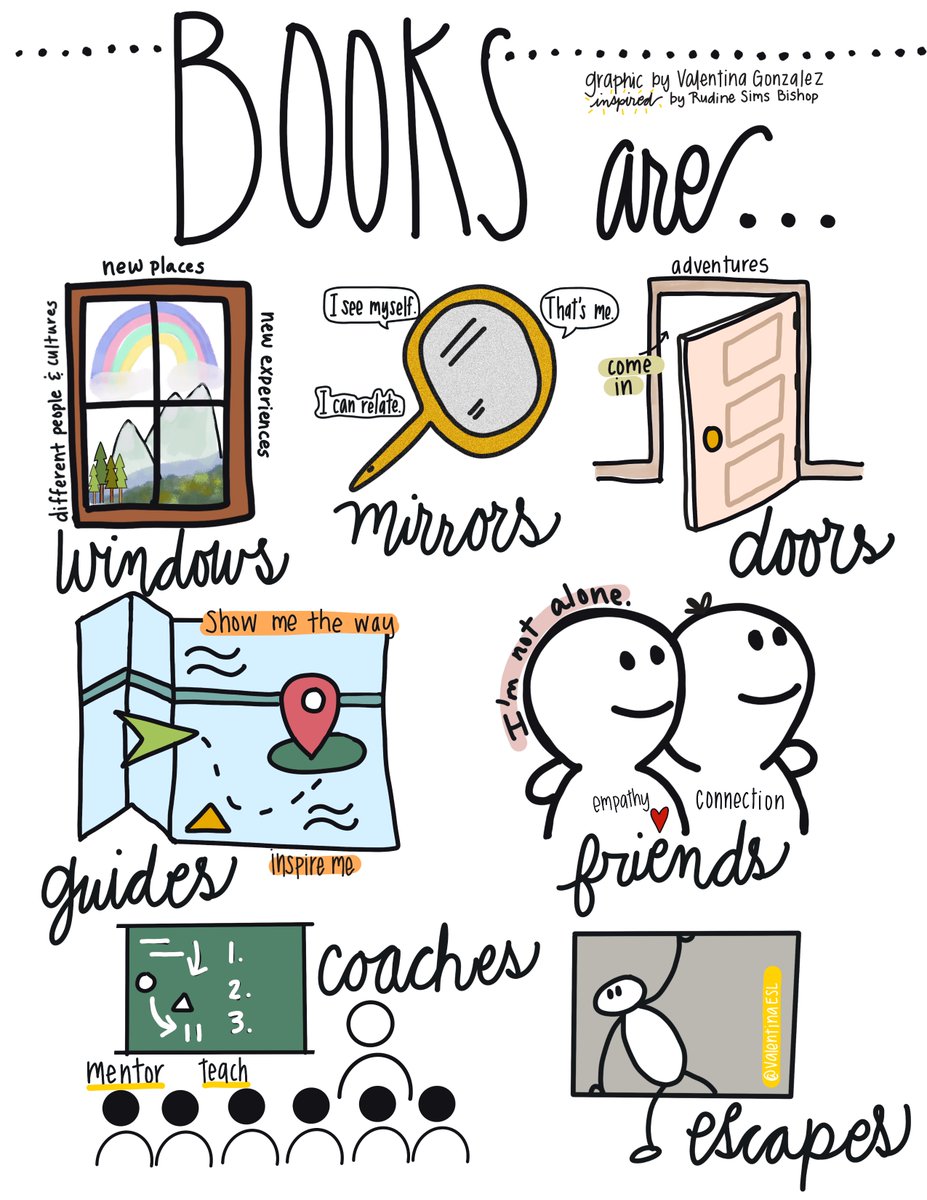 BOOKS
graphic by Valentina Gonzalez
inspired by Rudine Sims Bishop
are...
new places
different people & cultures
new experiences
windows
I see myself.
That's me.
I can relate.
mirrors
adventures
come
in
doors
Show me the way
inspire me
guides
I'm not alone.
empathy
connection
friends
1.
2.
3.
coaches
mentor
teach
@ValentinaESL
escapes